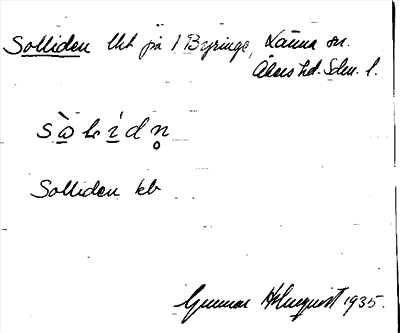 Solliden lht på 1 Byringe, Länna sn.
Åkers hd. Sdm. l.
sὼlid̥n
Solliden kb
Gunnar Holmquist 1935.